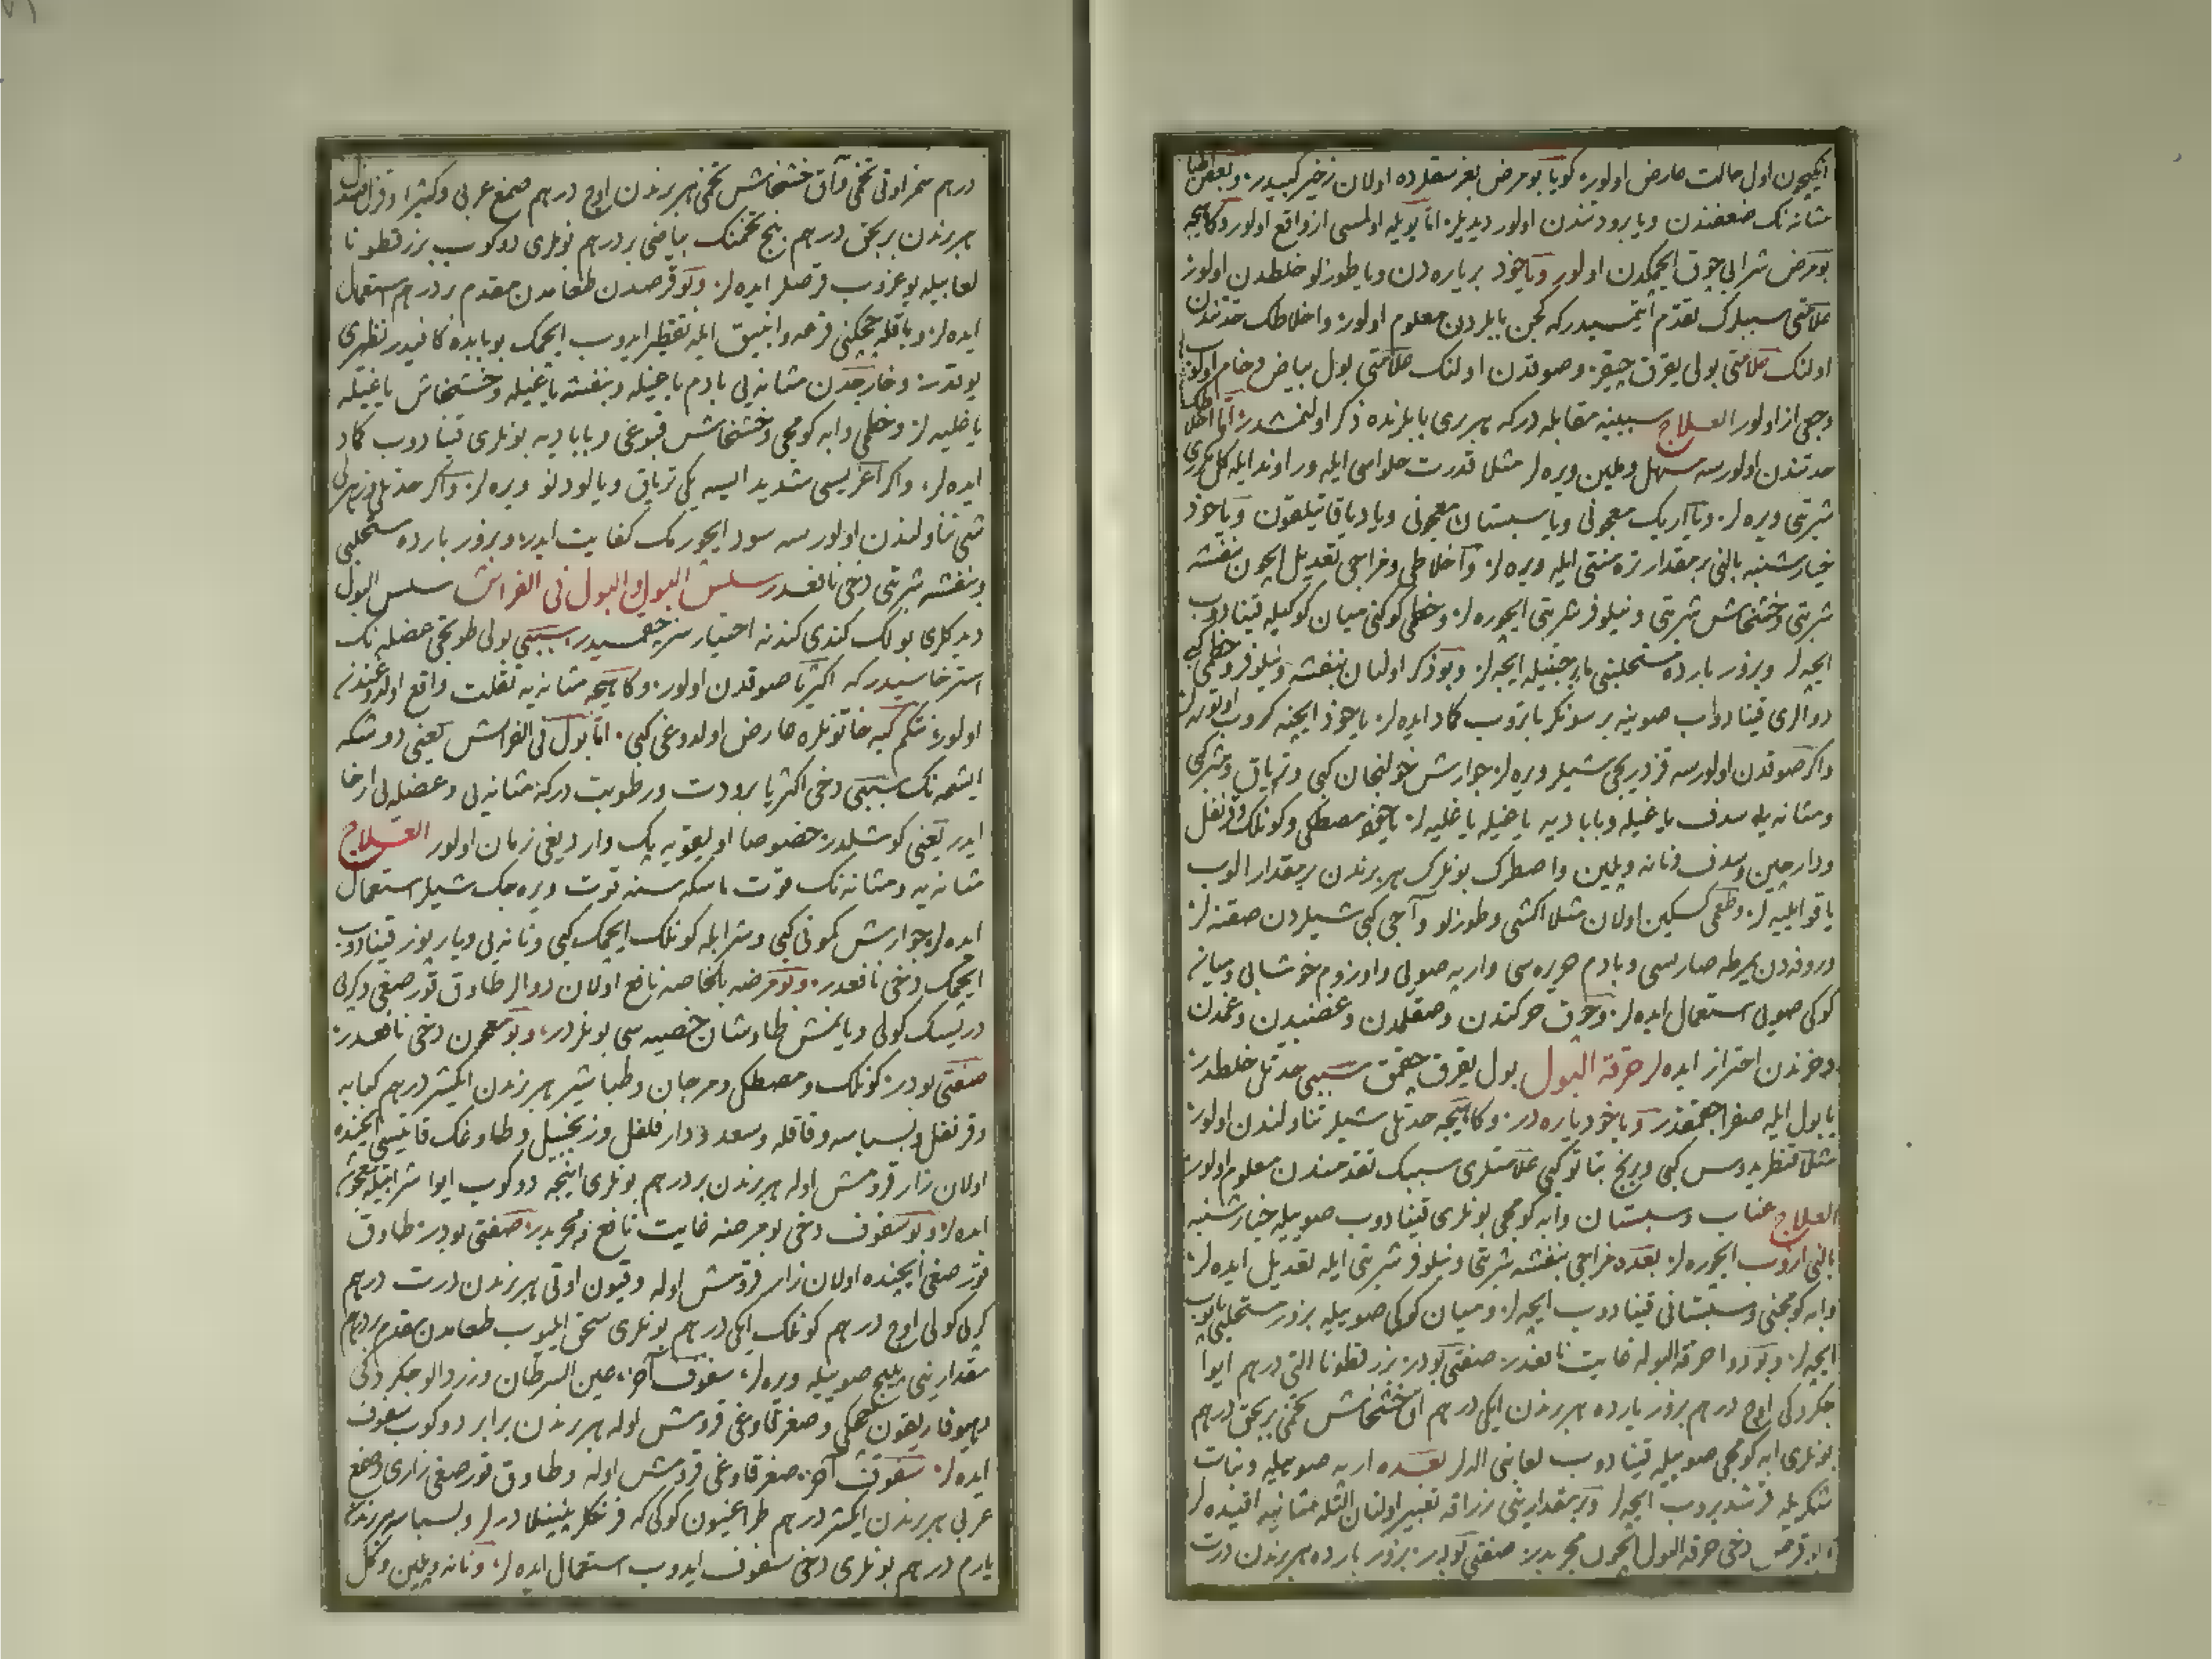 ایکیچون اول حالت عارض اولور کویا بو مرض بغرسقلرده اولان زخیر کبیدر وبعض اطبا
مثانه نک ضعفندن ویا برودتندن اولور دیدیلر اما بویله اولمسی از واقع اولور وکاهیجه
بو مرض شرابی چوق ایچمکدن اولور ویاخود بر یاره دن ویا طوزلو خلطدن اولور
علامتی سببلرک تقدم ایتمسیدر که کچن بابلردن معلوم اولور واخلاطک حدتندن
اولنک علامتی بولی یقرق چیقر وصوقدن اولنک علامتی بول بیاض وخام اولور
وجعی از اولور العلاج سببینه مقابله در که هر بری بابلرنده ذکر اولنمشدر اما اخلاطک
حدتندن اولورسه مسهل وملین ویره لر مثلا قدرت حلواسی ایله وراوند ایله کل مکرری
شربتی ویره لر ویا اریک معجونی ویا سبستان معجونی ویا دیاقاتیلقون ویاخود
خیارشنبه بالنی بر مقدار ترمنتی ایله ویره لر واخلاطی ومزاجی تعدیل ایچون بنفشه
شربتی وخشخاش شربتی ونیلوفر شربتی ایچوره لر وخطمی کوکنی میان کوکیله قینادوب
ایچه لر وبزور بارده مستحلبنی ایچه لر وبو ذکر اولنان بنفشه ونیلوفر وخطمی کبی
دوالری قینادوب صوینه بر سونکر باتروب کماد ایده لر یاخود ایچنه کروب اوتوره لر
واکر صوقدن اولورسه قزدریجی شیلر ویره لر جوارش خولنجان کبی وتریاق
ومثانه یه سدف یاغیله وبابادیه یاغیله یاغلیه لر مصطکی وکونلک وقرنفل
ودارچین وسدف ونانه وپلین واصطرک بونلرک هر برندن بر مقدار الوب
یاقو ایلیه لر وطعمی کسکین اولان مثلا اکشی وطوزلو وآجی کبی شیلردن صقنه لر
ورفدن یمرطه صاریسی وبادم هریره سی وارپه صویی واوزوم خوشابی ومیانه
کوکی صویی استعمال ایده لر وچوق حرکتدن وصقلمدن وغضبدن وغمدن
وحزندن احتراز ایده لر حرقة البول بول یقرق چقمق سببی حدتلی خلطدر
یا بول ایله صفرا چقمقدر ویاخود یاره در وکاهیجه حدتلی شیلر تناولندن اولور
مثلا قنطریدوس کبی علامتلری سببک تقدمندن معلوم اولور
العلاج عناب وسبستان وابه کومجی بونلری قینادوب صوییله خیارشنبه
بالنی ازوب ایچوره لر بعده مزاجی بنفشه شربتی ونیلوفر شربتی ایله تعدیل ایده لر
وابه کومجنی وسبستانی قینادوب ایچه لر ومیان کوکی صوییله بزور مستحلبنی یاپوب
ایچه لر وبو دوا حرقة البوله غایت نافعدر صفتی بودر بزر قطونا التی درهم ایوا
چکردکی اوچ درهم بزور بارده هر برندن ایکی درهم اق خشخاش تخمی بر بچق درهم
بونلری ابه کومجی صوییله قینادوب لعابنی الدلر بعده ارپه صوییله ونبات
شکریله قرشدیروب ایچه لر وبر مقدارینی زراقه تعبیر اولنان التله مثانیه اقیده لر
قرص دخی حرقة البول ایچون مجربدر صفتی بودر بزور بارده هر برندن درت
درهم سمزاوتی تخمی واق خشخاش تخمی هر برندن اوچ درهم صمغ عربی وکثیرا وقزل صندل
هر برندن بر بچق درهم بنج تخمنک بیاضی بر درهم بونلری دوکوب بزر قطونا
لعابیله یوغروب قرصلر ایده لر وبو قرصدن طعامدن مقدم بر درهم استعمال
ایده لر وباقله چیچکنی قرعه وانبیق ایله تقطیر ایدوب ایچمک بو بابده کافیدر نظیری
یوقدر وخارجدن مثانه یی بادم یاغیله وبنفشه یاغیله وخشخاش یاغیله
یاغلیه لر وخطمی وابه کومجی وخشخاش قبوغی وبابادیه بونلری قینادوب کماد
ایده لر واکر اغریسی شدید ایسه یکی تریاق ویا لودلو ویره لر واکر حدتلی وزهرلی
شی تناولندن اولورسه سود ایچورمک کفایت ایدر وبزور بارده مستحلبی
وبنفشه شربتی دخی نافعدر سلس البول والبول فی الفراش سلس البول
دیدکلری بولک کندی کندنه اختیارسز چقمسیدر سببی بولی طوتیجی عضله نک
استرخاسیدر که اکثریا صوقدن اولور وکاهیجه مثانه یه ثقلت واقع اولدوغندن
اولور نتکم کبه خاتونلره عارض اولدوغی کبی اما بول فی الفراش یعنی دوشکه
ایشمه نک سببی دخی اکثریا برودت ورطوبت در که مثانه یی وعضله یی ارخا
ایدر یعنی کوشلدر خصوصا اویقویه پک واردیغی زمان اولور العلاج
مثانه یه ومثانه نک قوت ماسکه سنه قوت ویره جک شیلر استعمال
ایده لر جوارش کمونی کبی وشرابله کونلک ایچمک کبی ونانه یی ویارپوز قینادوب
ایچمک دخی نافعدر وبو مرضه بالخاصه نافع اولان دوالر طاوق قورصغی وکرلی
دریسک کولی ویانمش طاوشان خصیه سی بونلردر وبو معجون دخی نافعدر
صفتی بودر کونلک ومصطکی ومرجان وطباشیر هر برندن ایکیشر درهم کبابه
وقرنفل وبسباسه وقاقله وسعد ودار فلفل وزنجبیل وطاوغک قاتیسی ایچنده
اولان زار قرومش اوله هر برندن بر درهم بونلری اینجه دوکوب ایوا شرابیله معجون
ایده لر وبو سفوف دخی بو مرضه غایت نافع ومجربدر صفتی بودر طاوق
قورصغی ایچنده اولان زار قرومش اوله وقیون اوتی هر برندن درت درهم
کرلی کولی اوچ درهم کونلک ایکی درهم بونلری سحق ایلیوب طعامدن مقدم بر درهم
مقدارینی صوییله ویره لر سفوف آخر عین السرطان وزردالو چکردکی
وصغر قاوغی قرومش اوله هر برندن برابر دوکوب سفوف
ایده لر سفوف آخر صغر قاوغی قرومش اوله وطاوق قورصغی زاری وصمغ
عربی هر برندن ایکیشر درهم طراغیون کوکی که فرنکلر پنپنلا دیرلر وبسباسه هر برندن
یارم درهم بونلری دخی سفوف ایدوب استعمال ایده لر ونانه وپلین وکل